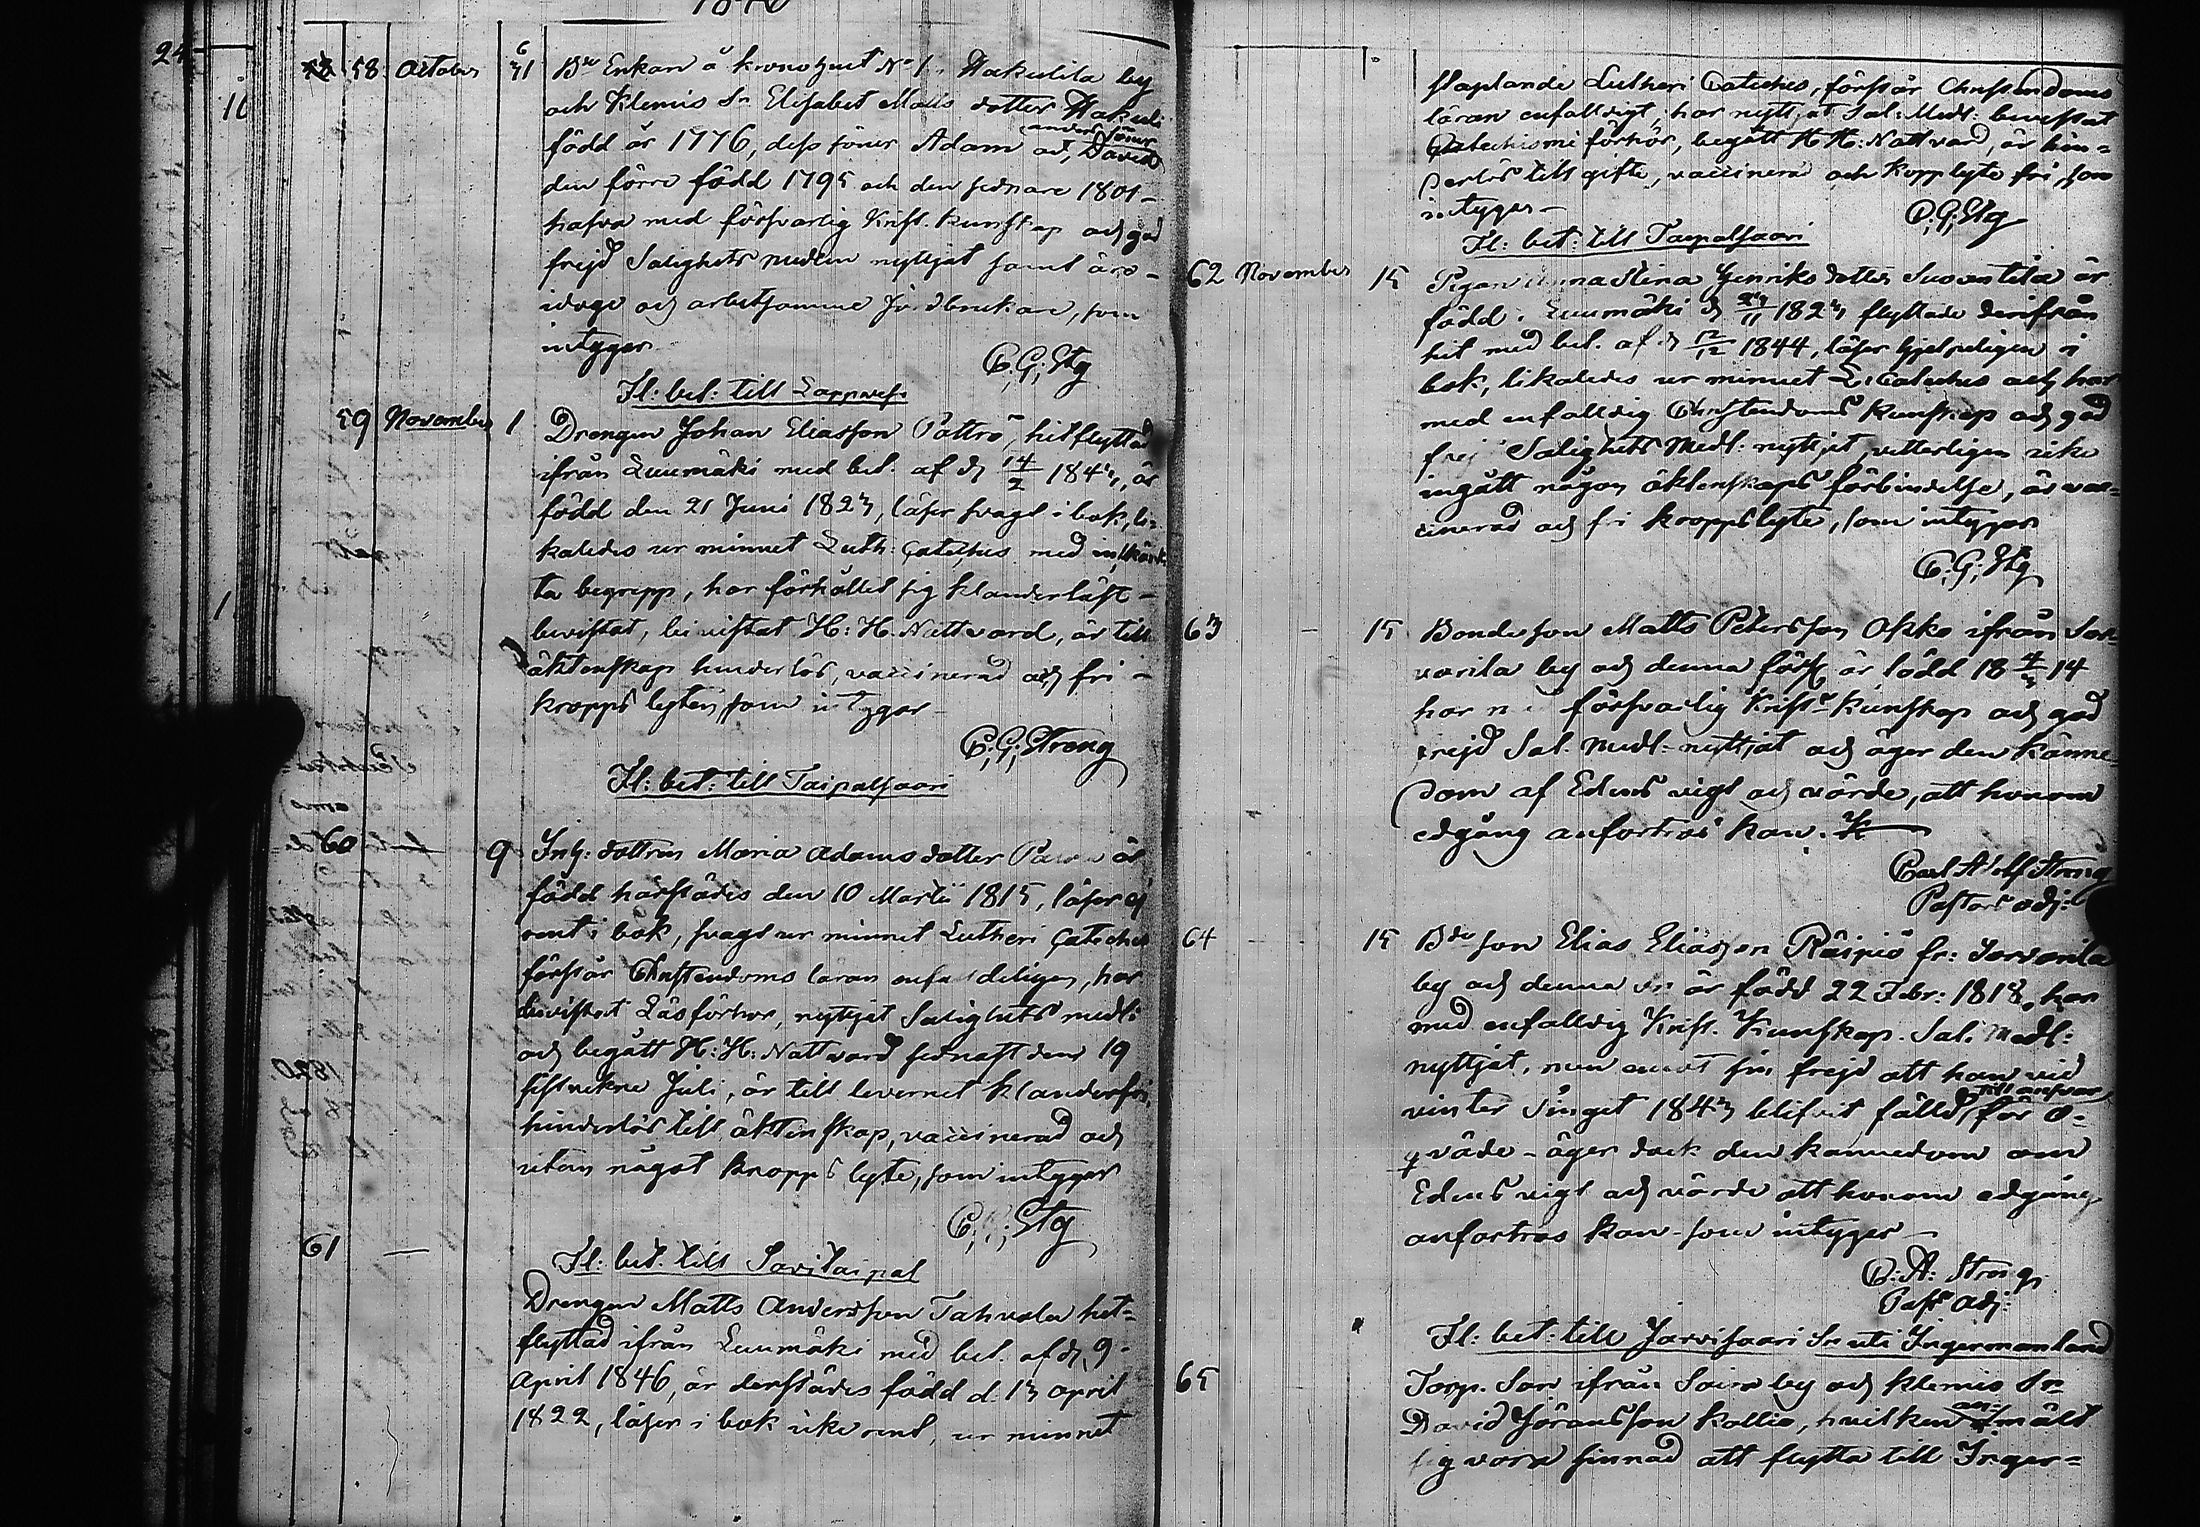 24
10
1
58 October 31 Bde Enkan å kronohemt No 1. Hakulila by
och Klemis Sn Elisabet Matts dotter Hakuli
född år 1776, dess söner Adam och, David anders söner
den förre född 1795 och den sednare 1801 –
hafva med försvarlig Krist. kunskap och god
frejd Salighets medlen nyttjat samt äro –
idoge och arbetsamme jordbrukare, som
intygar
C. G; Stg
Fl: bet: till Lappvesi
59 November 1 Drengen Johan Eliasson Pättrö, hitflyttad
ifrån Luumäki med bet. af d 14/2 1843, är
född den 21 Juni 1823, läser svagt i bok, li-
kaledes ur minnet Luth: Cateches med inskränk
ta begrepp, har förhållit sig klanderlöst –
bevistat, bevistat H: H. Nattvard, är till
äktenskap hinderlös, vaccinerad och fri –
kropps lyten, som intygar –
C; G; Streng
Fl: bet: till Taipalsaari
60 9 Inh: dottren Maria Adams dotter är
född härstädes den 10 Martii 1815, läser ej
rent i bok, svagt ur minnet Lutheri Cateches
förstår Christendoms läran enfaldeligen, har
bevistat Läsförhör, nyttjat Salighets medl:
och begått H: H: Nattvard sednast den 19
sistvekne Juli, är till levernet klanderfri,
hinderlös till äktenskap, vaccinerad och
utan något kropps lyte, som intygar
C; G; Stg
Fl: bet. till Savitaipal
61 — Drengen Matts Andersson Tahvola hit-
flyttad ifrån Luumäki med bet. af d. 9
April 1846, är derstädes född d. 13 april
1822, läser i bok icke rent, ur minnet
staplande Lutheri Cateches, förstår Christendoms
läran enfaldigt, har nyttjat Sal: Medl: bevistat
Catechismi förhör, begått H H: Nattvard, är hin-
derlös till gifte, vaccinerad och kropplyte fri, som
intygar –
C; G; Stg
Fl: bet: till Taipalsaari
62 November 15 Pigan Anna Stina Henriks dotter Suoantila är
född i Luumäki d 23/11 1823 flyttade derifrån
hit med bet. af d 12/12 1844, läser hjelpeligen i
bok, likaledes ur minnet L: Cateches och har
med enfaldig Christendoms kunskap och god
frejd Salighets Medl: nyttjat, vetterligen icke
ingått någon äktenskaps förbindelse, är vac-
cinerad och fri kroppslyte, som intygar
C; G; Stg
63 – 15 Bondeson Matts Petersson Opko ifrån Sar-
varila by och denna förs: är född 18 4/3 14
har med försvarlig Krist: kunskap och god
frejd Sal. Medl. nyttjat och äger den känne-
dom af Edens vigt och värde, att honom
edgång anförtros kan.
Carl Adolf Streng
Pastors adj:
64 – 15 Bde son Elias Eliasson Räipiö fr: Sarvarila
by och denna sn är född 22 Febr: 1818, har
med enfaldig Krist. Kunskap. Sal. Medl:
nyttjat, men frejd att han vid
vinter tinget 1843 blifvit fälld till ansvar för o-
qväde – äger dock den kännedom om
Edens vigt och värde att honom edgång
anförtros kan – som intygar –
C: A: Streng
Pastr adj:
Fl: bet: till Jarvisaari Sn uti Ingermanland
65 Torp. Son ifrån by och Klemis Sn
David Jöransson Kallio, hvilken anmält
sig vara sinnad att flytta till Inger=